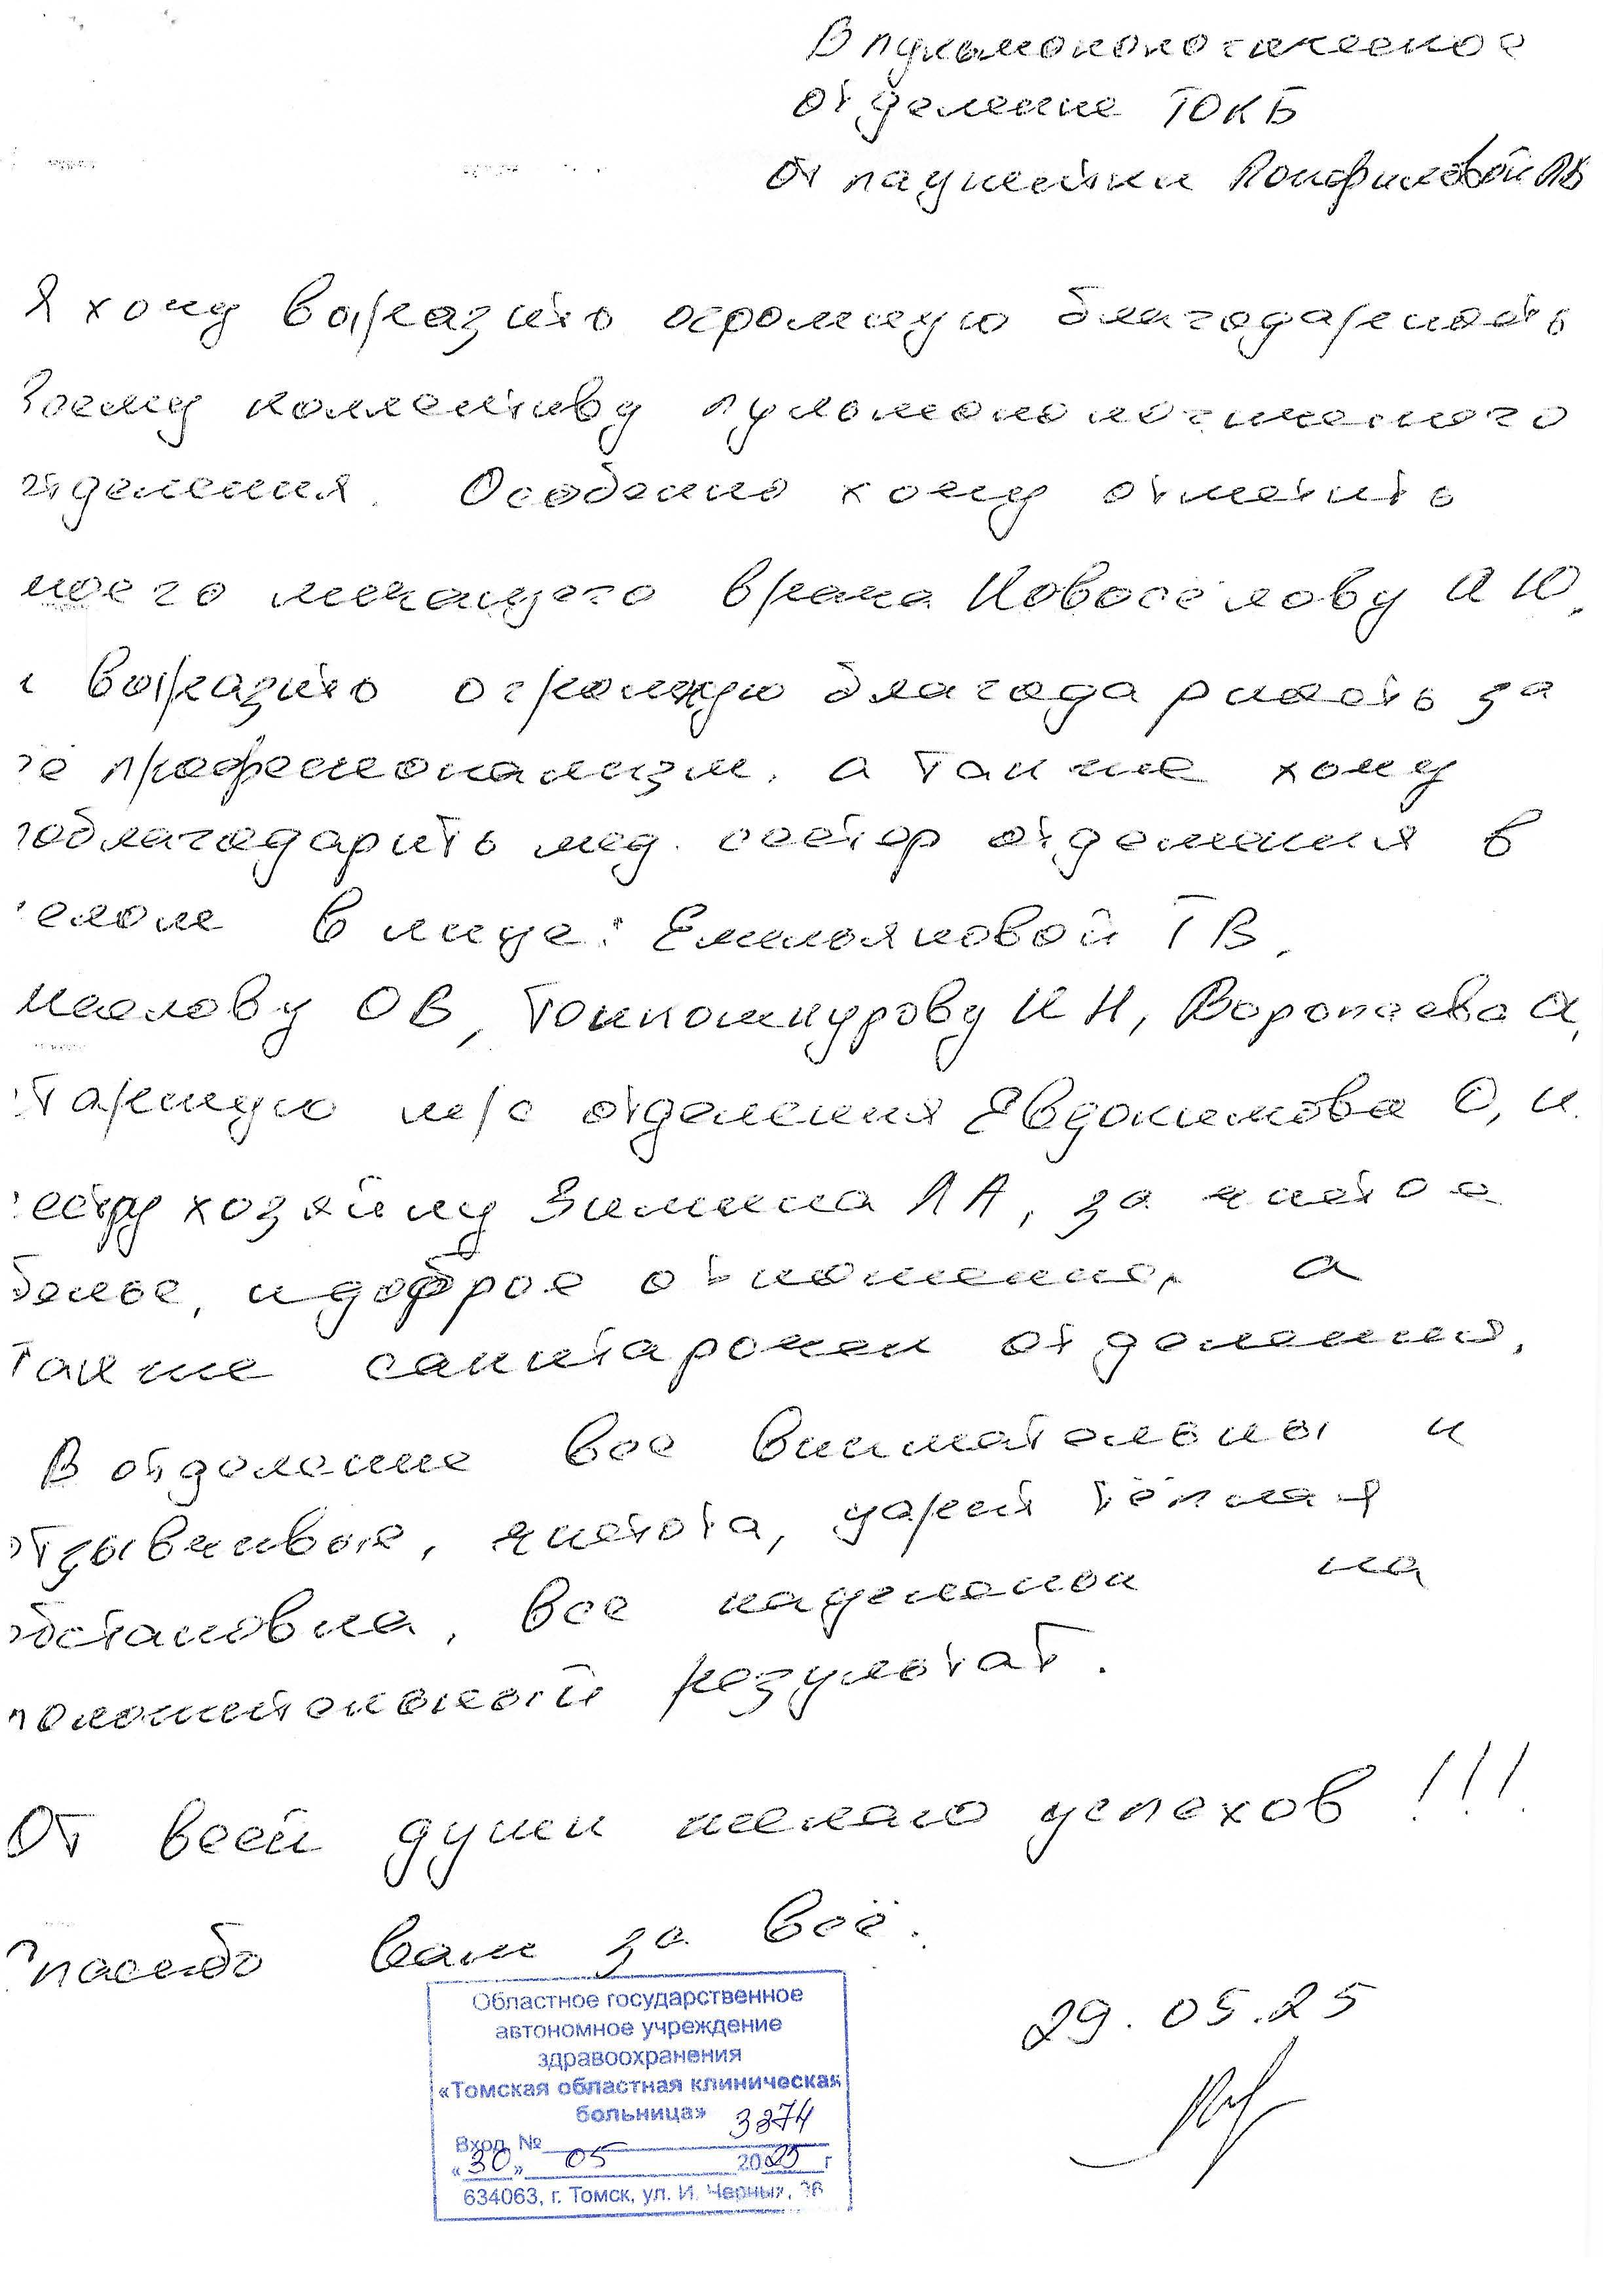 В пульмонологическое
отделение ТОКБ
От пациентки Панфиловой ЛВ
Я хочу выразить огромную благодарность
Всему коллективу пульмонологического
отделения. Особенно хочу отметить
моего лечащего врача Новосёлову А Ю,
и выразить огромную благодарность за
её профессионализм, а также хочу
поблагодарить мед. сестёр отделения в
целом в лице: Емельяновой Т В,
Маслову О В, И Н, Воропаева А,
Старшую м/с отделения Евдокимова О, И.
сестру хозяйку Зимина Л А, за чистое
белье, и доброе отношение, а
также санитарочек отделения.
В отделение все внимательны и
отзывчивые, чистота, царит тёплая
обстановка, все нацелены на
положительный результат.
От всей души желаю успехов!!!
Спасибо Вам за всё.
29.05.25
Областное государственное
автономное учреждение
здравоохранения
«Томская областная клиническая
больница»
Вход. № 3374
«30» 05 2025 г
634063, г. Томск, ул. И. Черных, 96